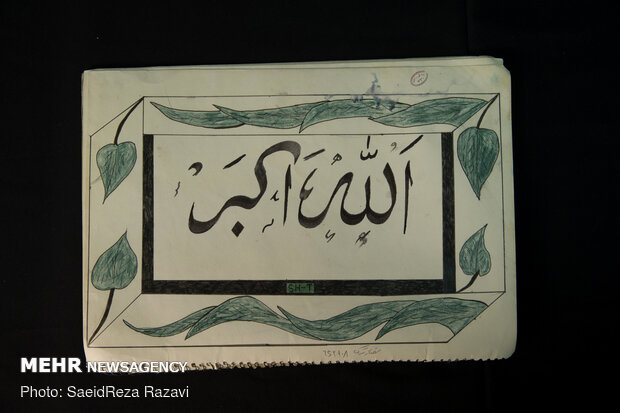 الله أكبر
SH-T
MEHR NEWSAGENCY
Photo: SaeidReza Razavi